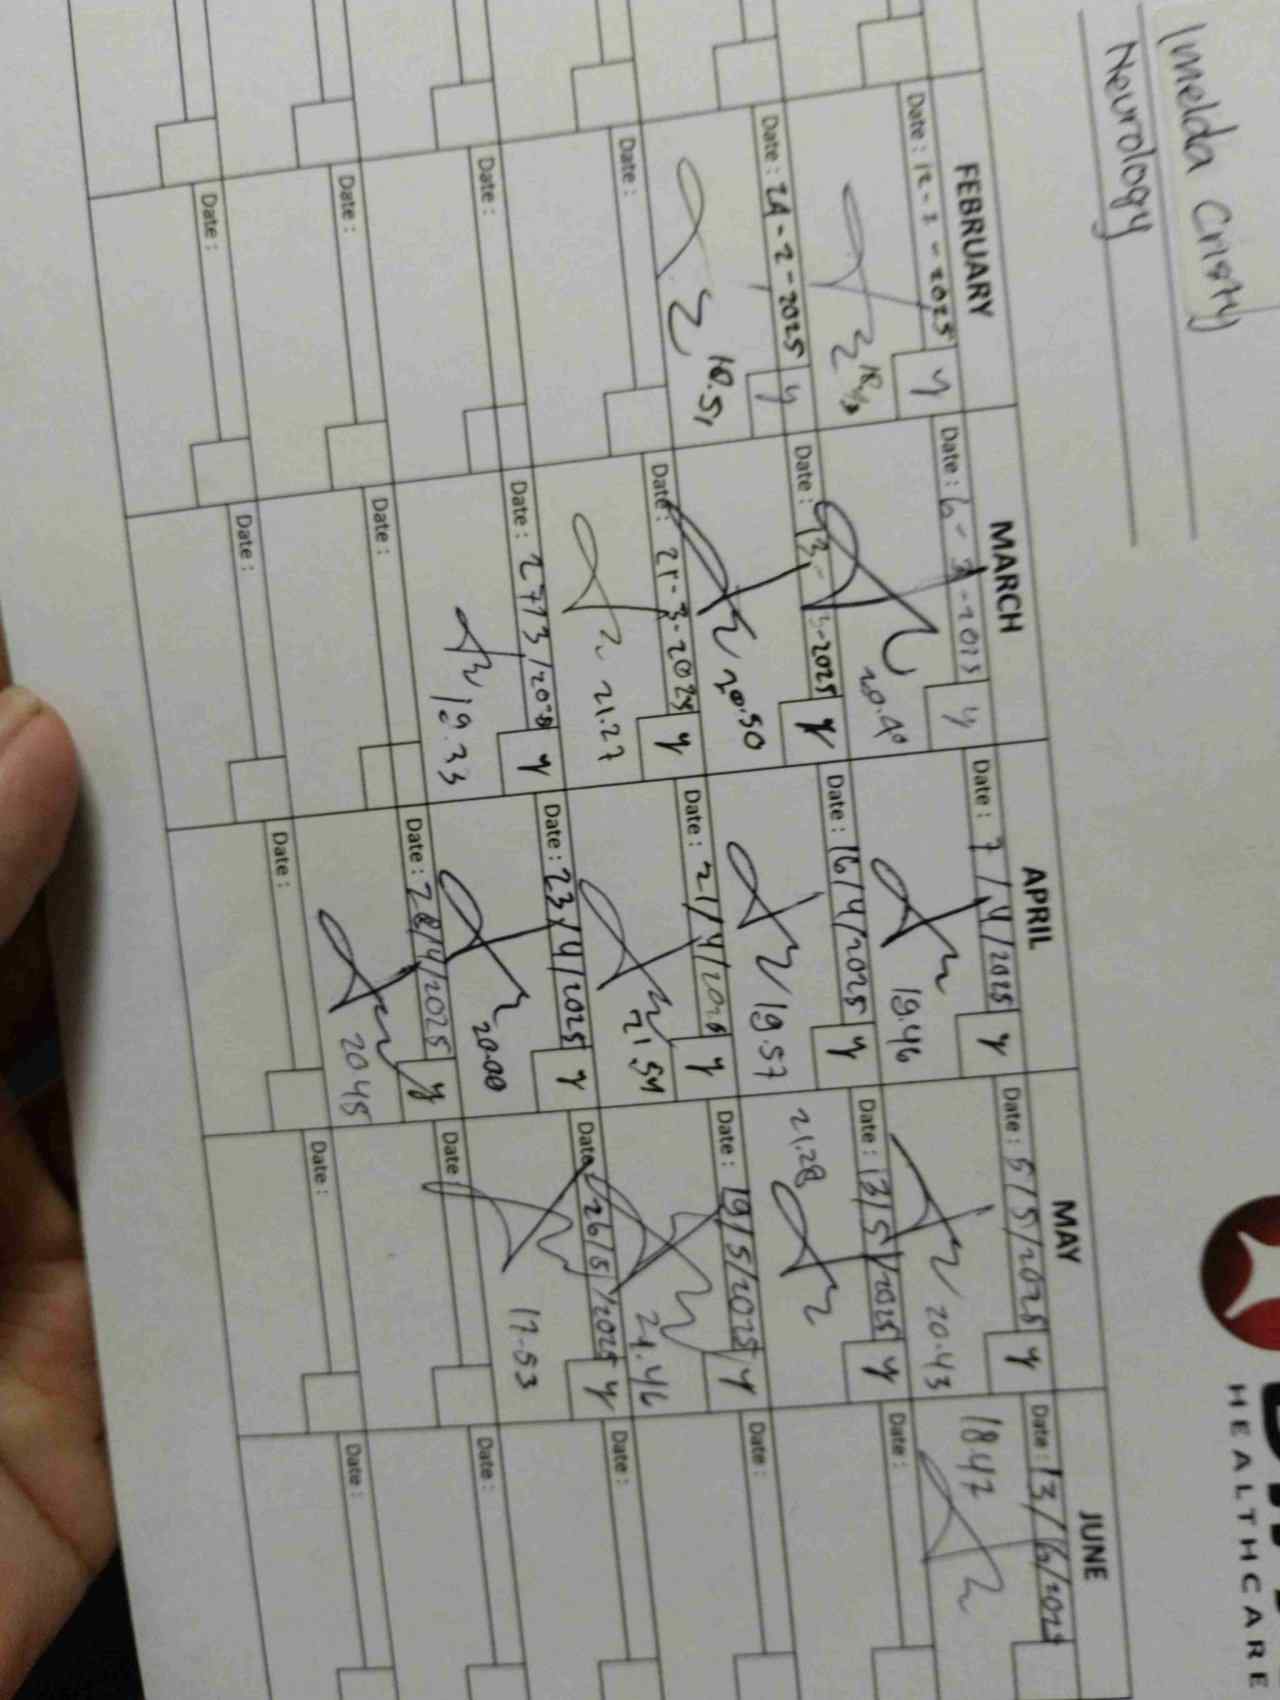 Imelda Cristy
Neurology
HEALTHCARE
FEBRUARY
Date : 12-2-2025 y
Date : 24-2-2025 y
18.51
Date :
Date :
Date :
Date :
MARCH
Date : 6-3-2025 y
20.40
Date : 13-3-2025 y
20.50
Date : 21-3-2025 y
21.27
Date : 27/3/ y
19.33
Date :
Date :
APRIL
Date : 7/4/2025 y
19.46
Date : 16/4/2025 y
19.57
Date : 21/4/2025 y
21.54
Date : 23/4/2025 y
20.00
Date : 28/4/2025 y
2048
Date :
MAY
Date : 5/5/2025 y
20.43
Date : 13/5/2025 y
21.28
Date : 19/5/2025 y
21.46
Date : 26/5/2025 y
17.53
Date
Date :
JUNE
Date : 13/6/2025
1847
Date :
Date :
Date :
Date :
Date :